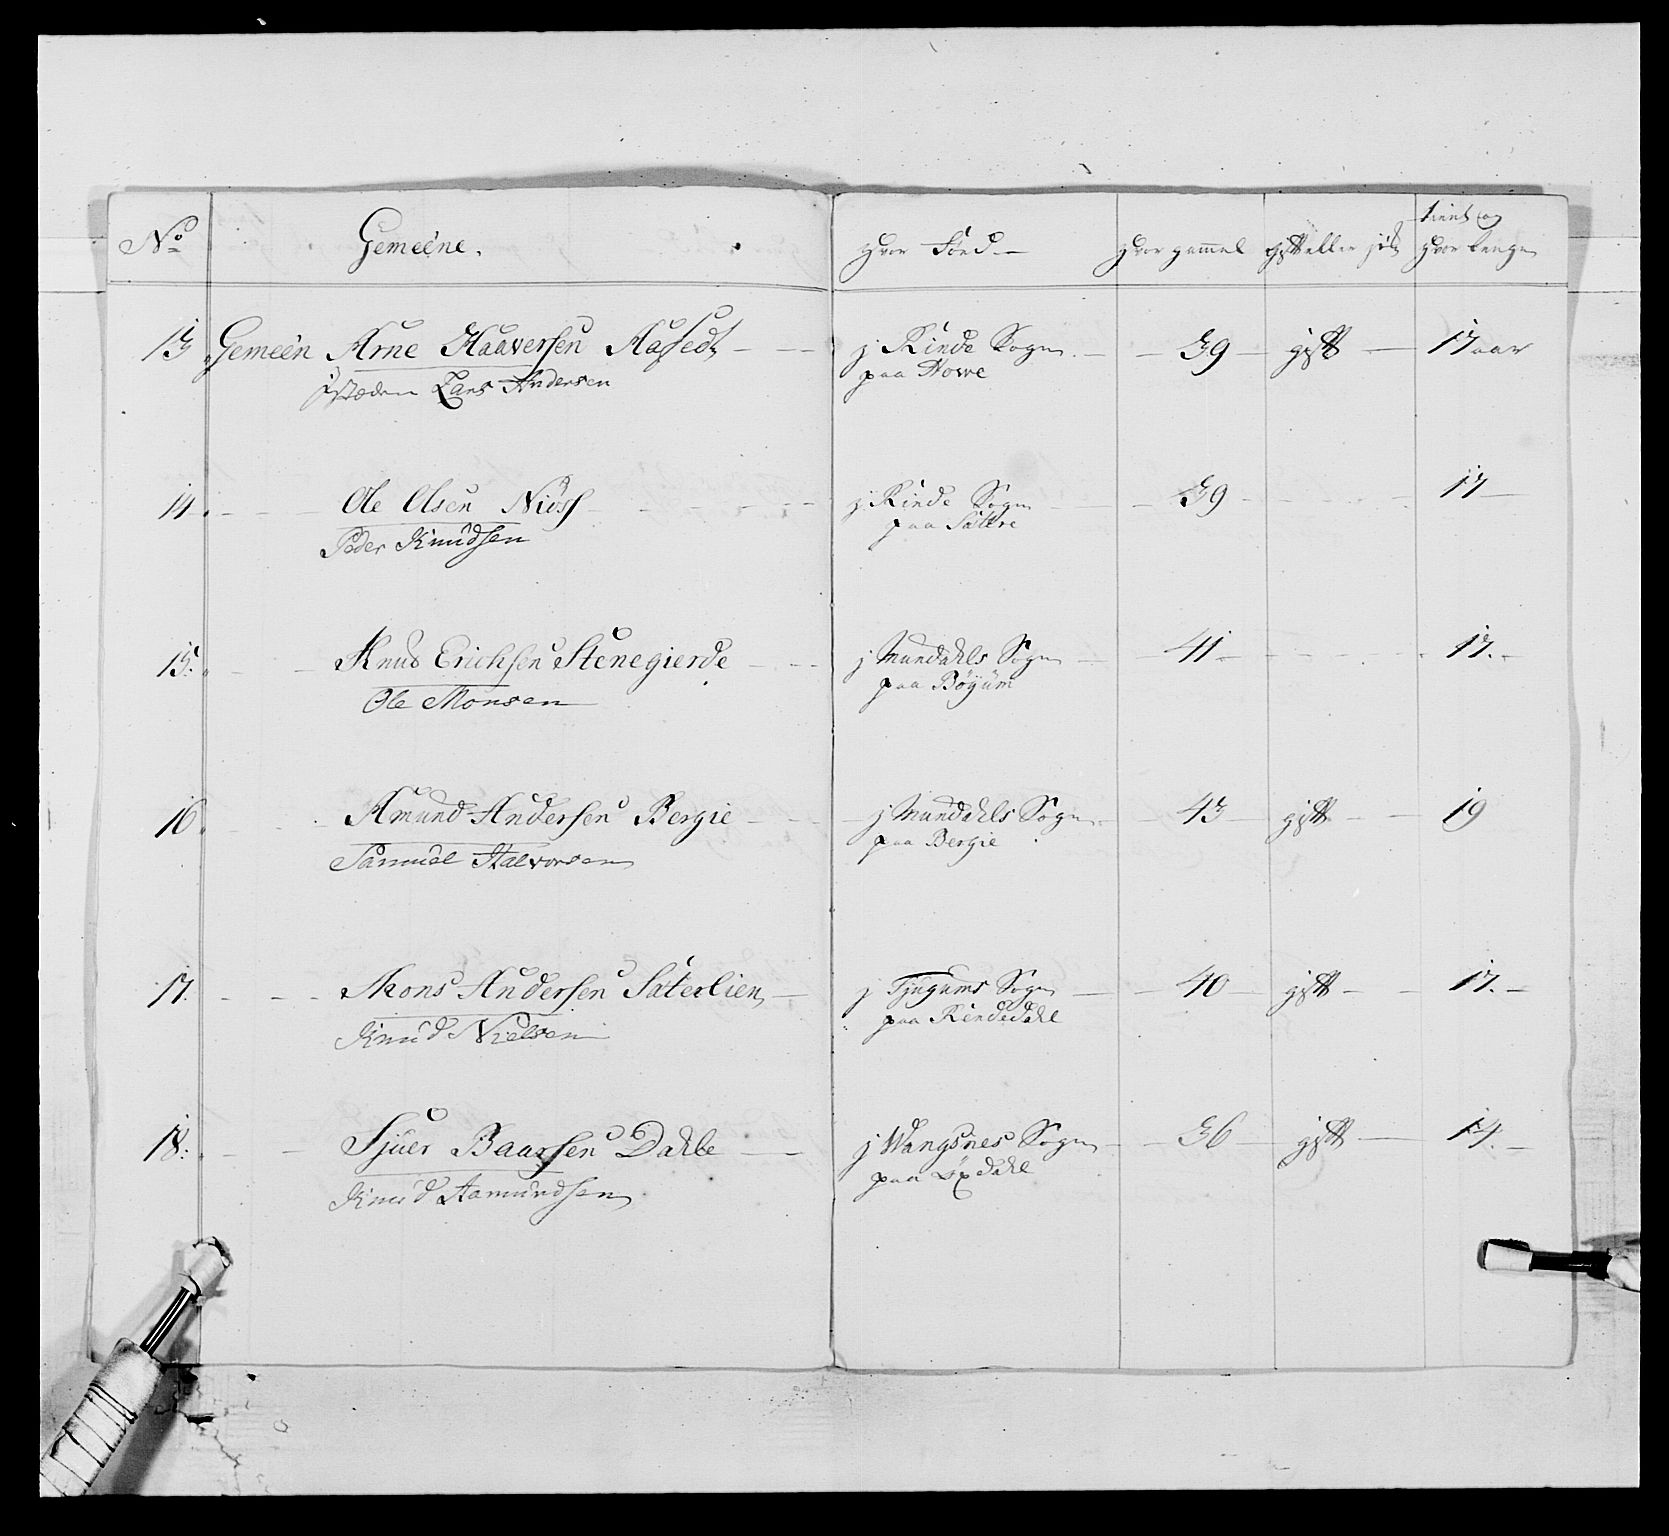 No Gemeéne. Hvor Föed Hvor gammel gift eller hvor lenge
13 Gemeén Arne Haaversen Aafedt j Rinde Sogn 39 gift 17 aar
j stæden Lars Andersen paa Howe
14. Ole Olsen Niøss j Rinde Sogn 39 17
Peder Knudsen paa Sættre
15. Knud Erichsen Stenegierde j Mundahls Sogn 41 17.
Ole Monsen paa Böÿum
16. Amund Andersen Bergie j Mundahls Sogn 43 gift 19
Samuel Halvorsen paa Bergie
17. Mons Andersen Sæterlien j Tjugums Sogn 40 gift 17.
Knud Nielsen paa Rindedahl
18. Sjuer Baarsen Dahle j Wangsnes Sogn 36 gift 14.
Knud Aamundsen paa